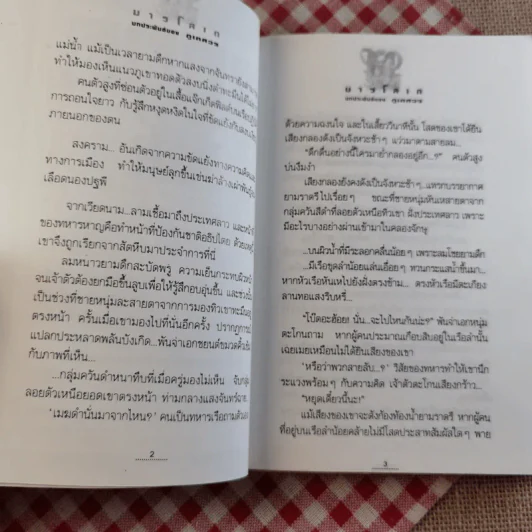 มารโลเก
บทประพันธ์ของ ภูเตศวร
แม่น้ำ แม้เป็นเวลายามดึกหากแสงจากจันทรายัง
ทำให้มองเห็นแนวภูเขาทอดตัวสงบนิ่งดำทะมึน
คนตัวสูงที่ซ่อนตัวอยู่ในเสื้อแจ๊กเก็ต
การถอนใจยาว กับรู้สึกหงุดหงิดในใจที่ขัดแย้งกับ
ภายนอกของตน
สงคราม... อันเกิดจากความขัดแย้งทางความคิด
ทางการเมือง ทำให้มนุษย์ลุกขึ้นเข่นฆ่าล้างเผ่าพันธุ์
เลือดนองปฐพี
จากเวียดนาม...ลามเชื้อมาถึงประเทศลาว
ของทหารหาญคือทำหน้าที่ป้องกันชาติอธิปไตย
เขาจึงถูกเรียกจากสัตหีบมาประจำการที่นี่
ลมหนาวยามดึกสะบัดพรู ความเย็นกระทบผิว
จนเจ้าตัวต้องยกมือขึ้นลูบเพื่อให้รู้สึกอบอุ่นขึ้น
เป็นช่วงที่ชายหนุ่มละสายตาจากการมองทิวเขา
ตรงหน้า ครั้นเมื่อเขามองไปที่นั่นอีกครั้ง
แปลกประหลาดพลันบังเกิด...พันจ่าเอกชยนต์ขมวดคิ้ว
กับภาพที่เห็น...
...กลุ่มควันดำหนาทึบที่เมื่อครู่มองไม่เห็น
ลอยตัวเหนือยอดเขาตรงหน้า ท่ามกลางแสงจันทร์ฉาย
'เมฆดำนั่นมาจากไหน?' คนเป็นทหารเรือถามตัวเอง
2
มารโลเก
บทประพันธ์ของ ภูเตศวร
ด้วยความฉงนใจ และในเสี้ยววินาทีนั้น โสตของเขาได้ยิน
เสียงกลองดังเป็นจังหวะช้าๆ แว่วมาตามสายลม...
"ดึกดื่นอย่างนี้ใครมาย่ำกลองอยู่อีก..?" คนตัวสูง
บ่นงึมงำ
เสียงกลองยังคงดังเป็นจังหวะช้าๆ...แทรกบรรยากาศ
ยามราตรีไปเรื่อยๆ ขณะที่ชายหนุ่มหันเหสายตาจาก
กลุ่มควันสีดำที่ลอยตัวเหนือทิวเขา ฝั่งประเทศลาว เพราะ
มีอะไรบางอย่างผ่านเข้ามาในคลองจักษุ
...บนผิวน้ำที่มีระลอกคลื่นน้อยๆ เพราะลมโชยยามดึก
...มีเรือขุดลำน้อยแล่นเอื่อยๆ ทวนกระแสน้ำขึ้นมา...
หากหัวเรือหันเหไปยังฝั่งตรงข้าม... ตรงหัวเรือมีตะเกียง
ลานทอแสงริบหรี่...
"โป๊ดอะฮ้อย! นั่น...จะไปไหนกันน่ะ?" พันจ่าเอกหนุ่ม
ตะโกนถาม หากผู้คนประมาณเกือบสิบอยู่ในเรือลำนั้น
เฉยเมยเหมือนไม่ได้ยินเสียงของเขา
"หรือว่าพวกลายลับ..?" วิสัยของทหารทำให้เขานึก
ระแวงพร้อมๆ กับความคิด เจ้าตัวตะโกนเสียงกร้าว...
"หยุดเดี๋ยวนี้นะ!"
แม้เสียงของเขาจะดังก้องท้องน้ำยามราตรี หากผู้คน
ที่อยู่บนเรือลำน้อยคล้ายไม่มีโสตประสาทสัมผัสใดๆ พาย
3